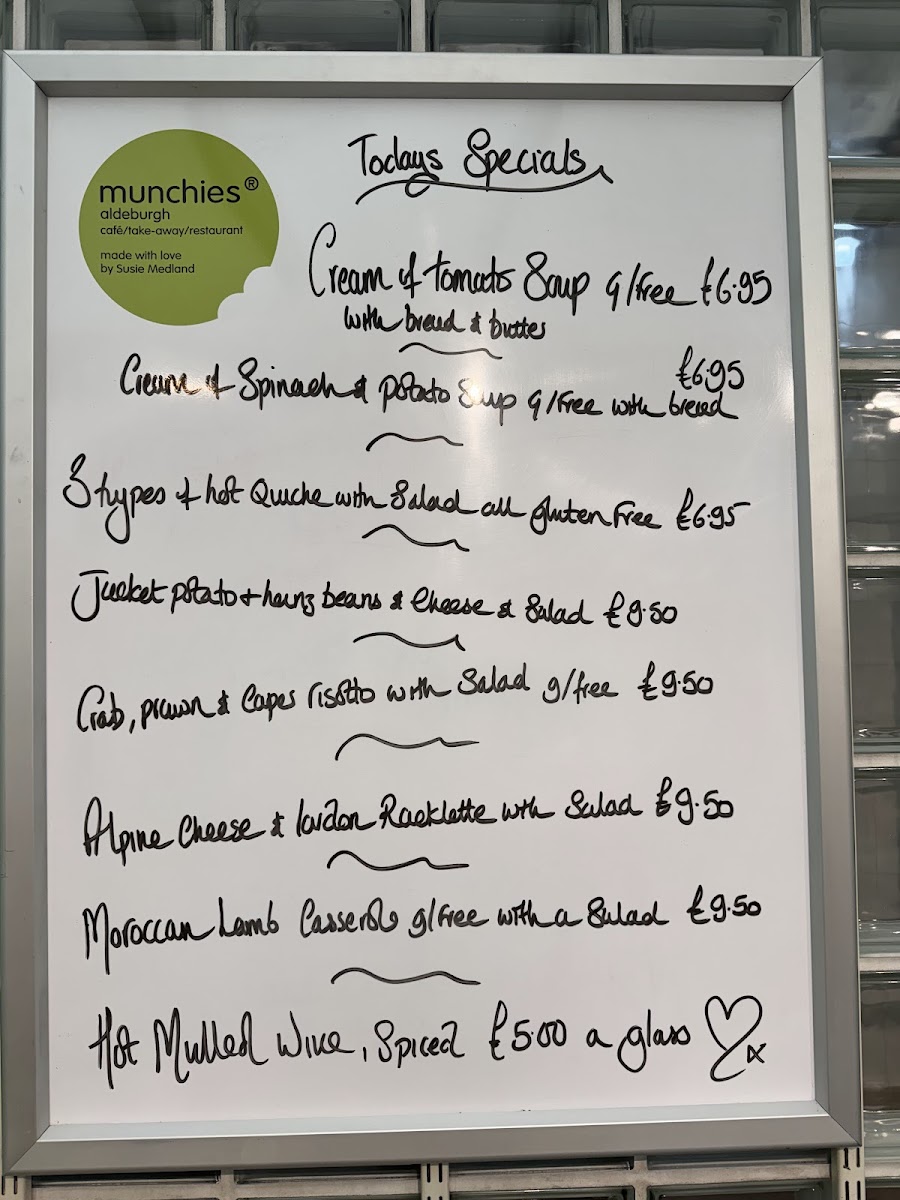 munchies®
aldeburgh
café/take-away/restaurant
made with love
by Susie Medland
Todays Specials
Cream of tomato Soup g/free £6.95
with bread & butter
Cream of Spinach & potato Soup g/free with bread £6.95
3 types of hot Quiche with Salad all gluten free £6.95
Jacket potato + heinz beans & Cheese & Salad £9.50
Crab, prawn & Caper risotto with Salad g/free £9.50
Alpine Cheese & lardon Racklette with Salad £9.50
Moroccan Lamb Casserole g/free with a Salad £9.50
Hot Mulled Wine, Spiced £5.00 a glass x